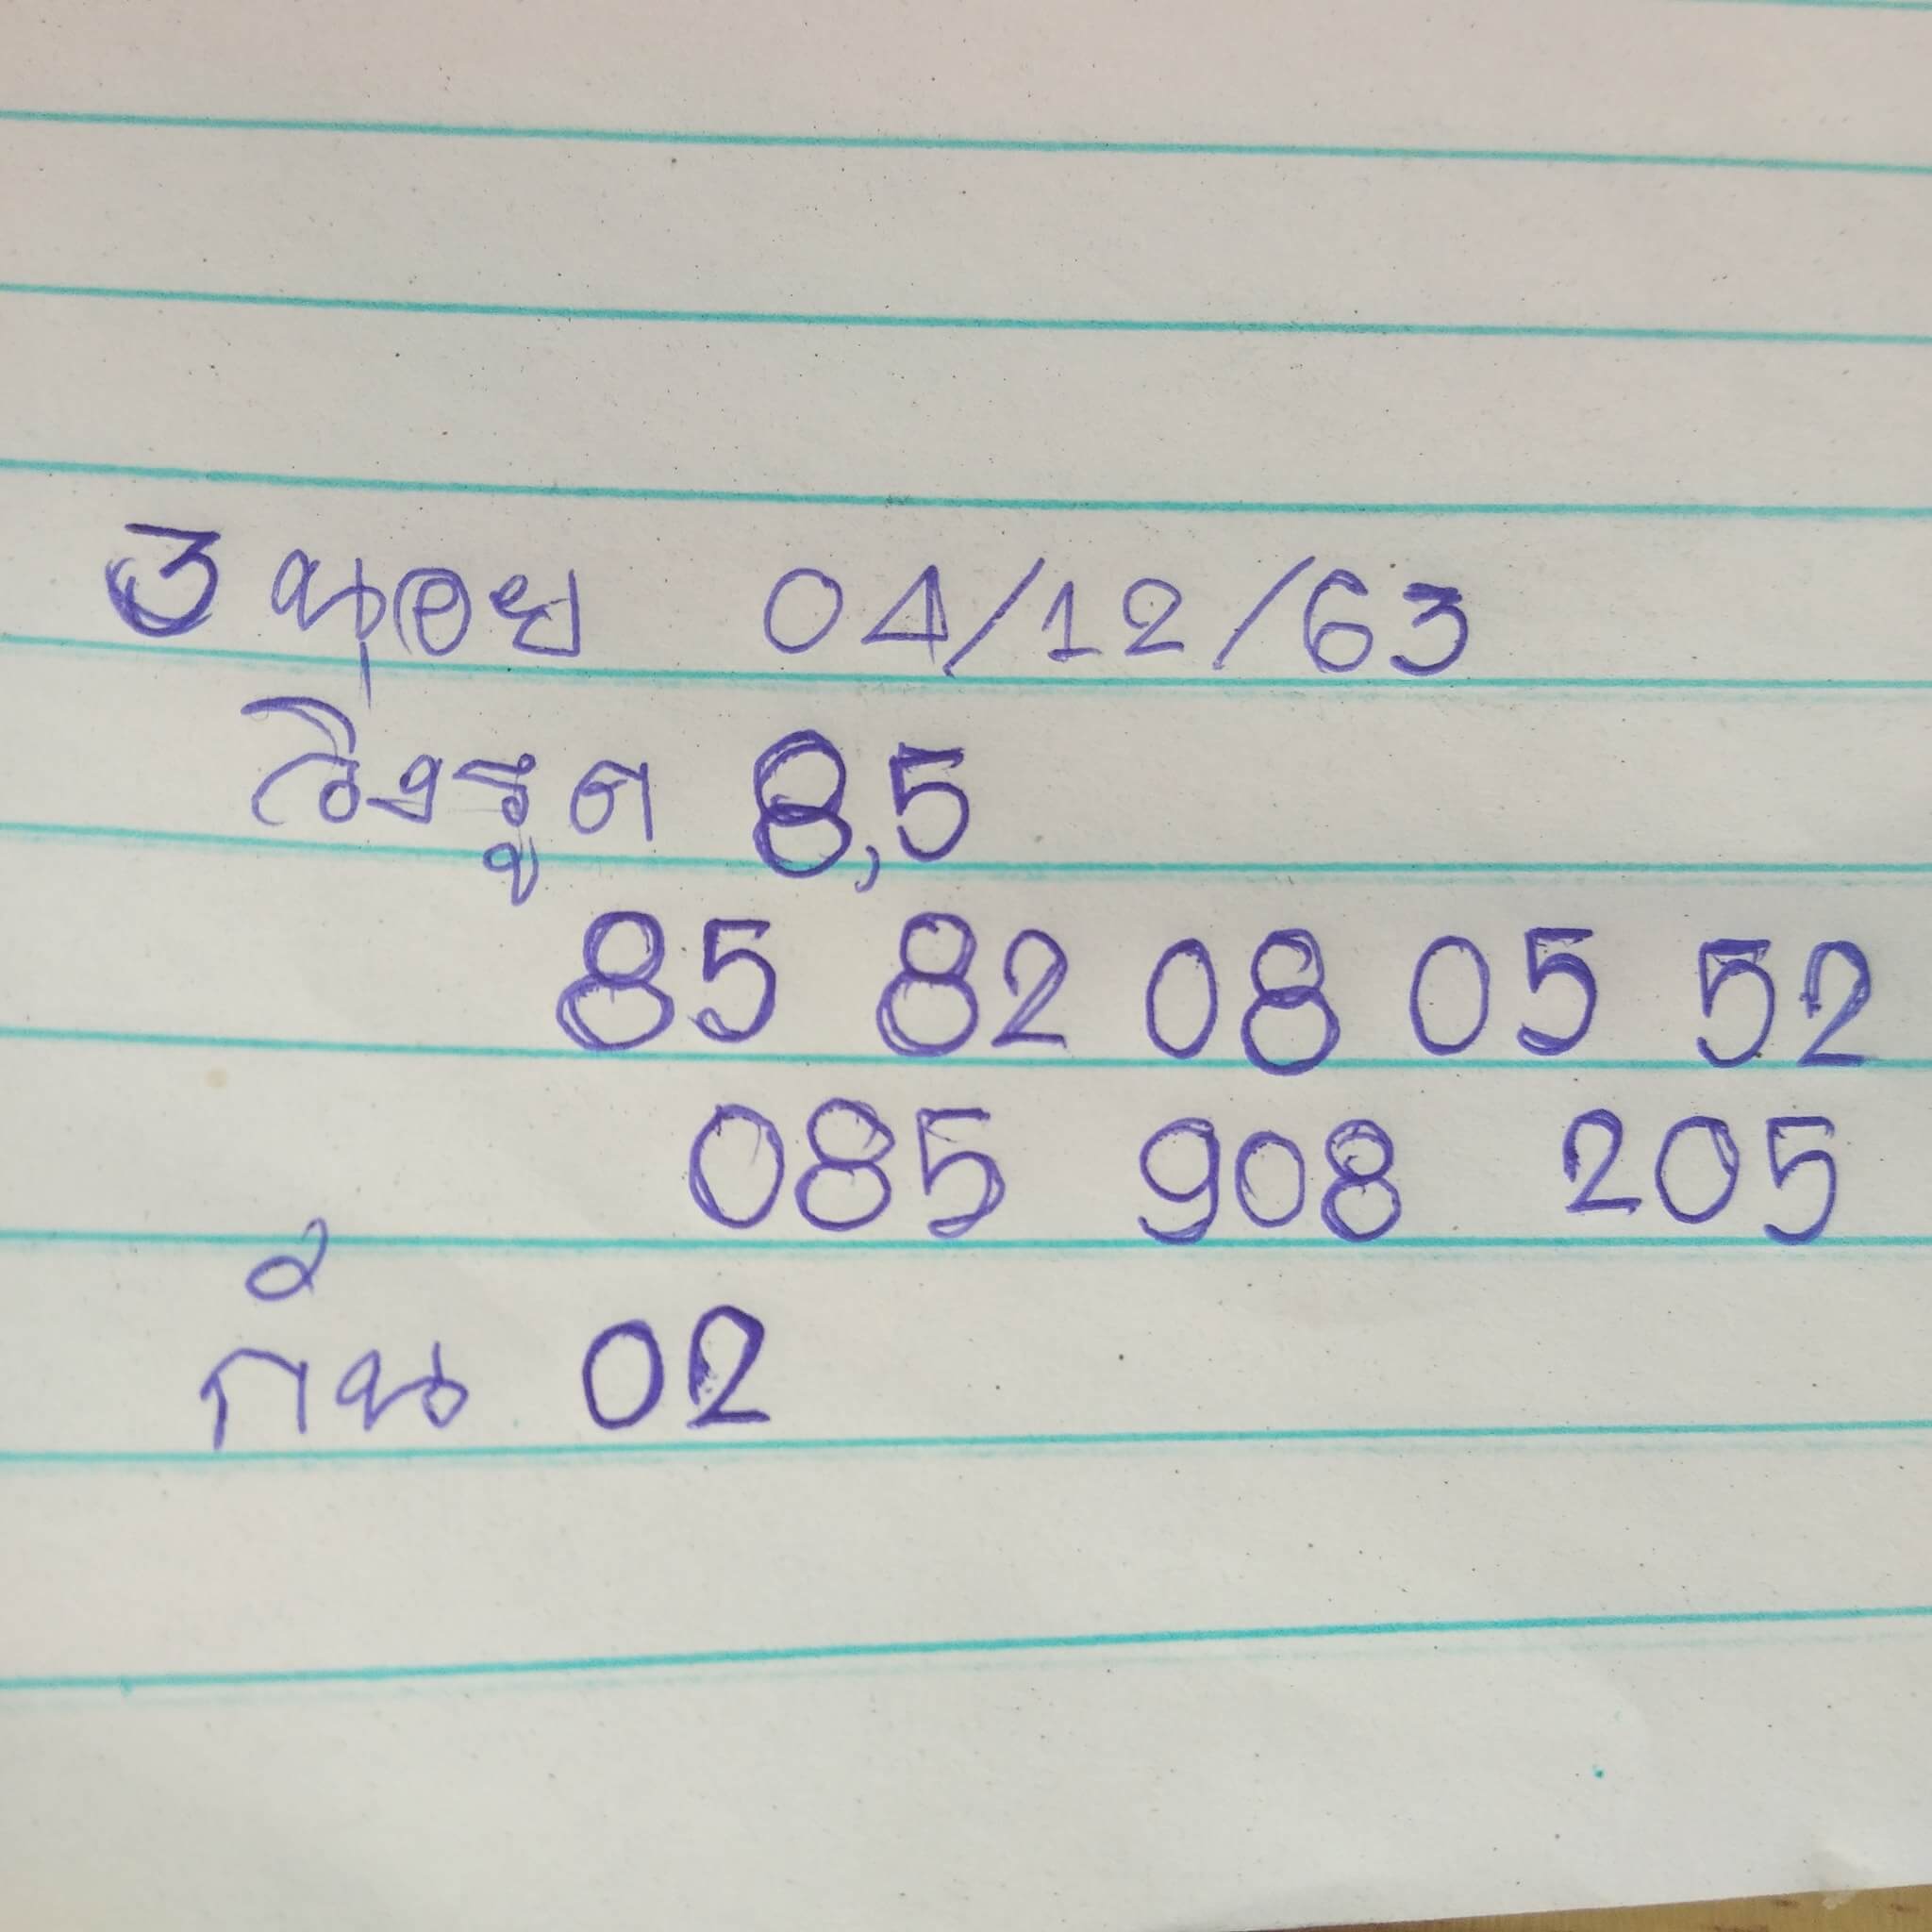 04/12/63
วิ่งรูด 8,5
85 82 08 05 52
085 908 205
กัน 02